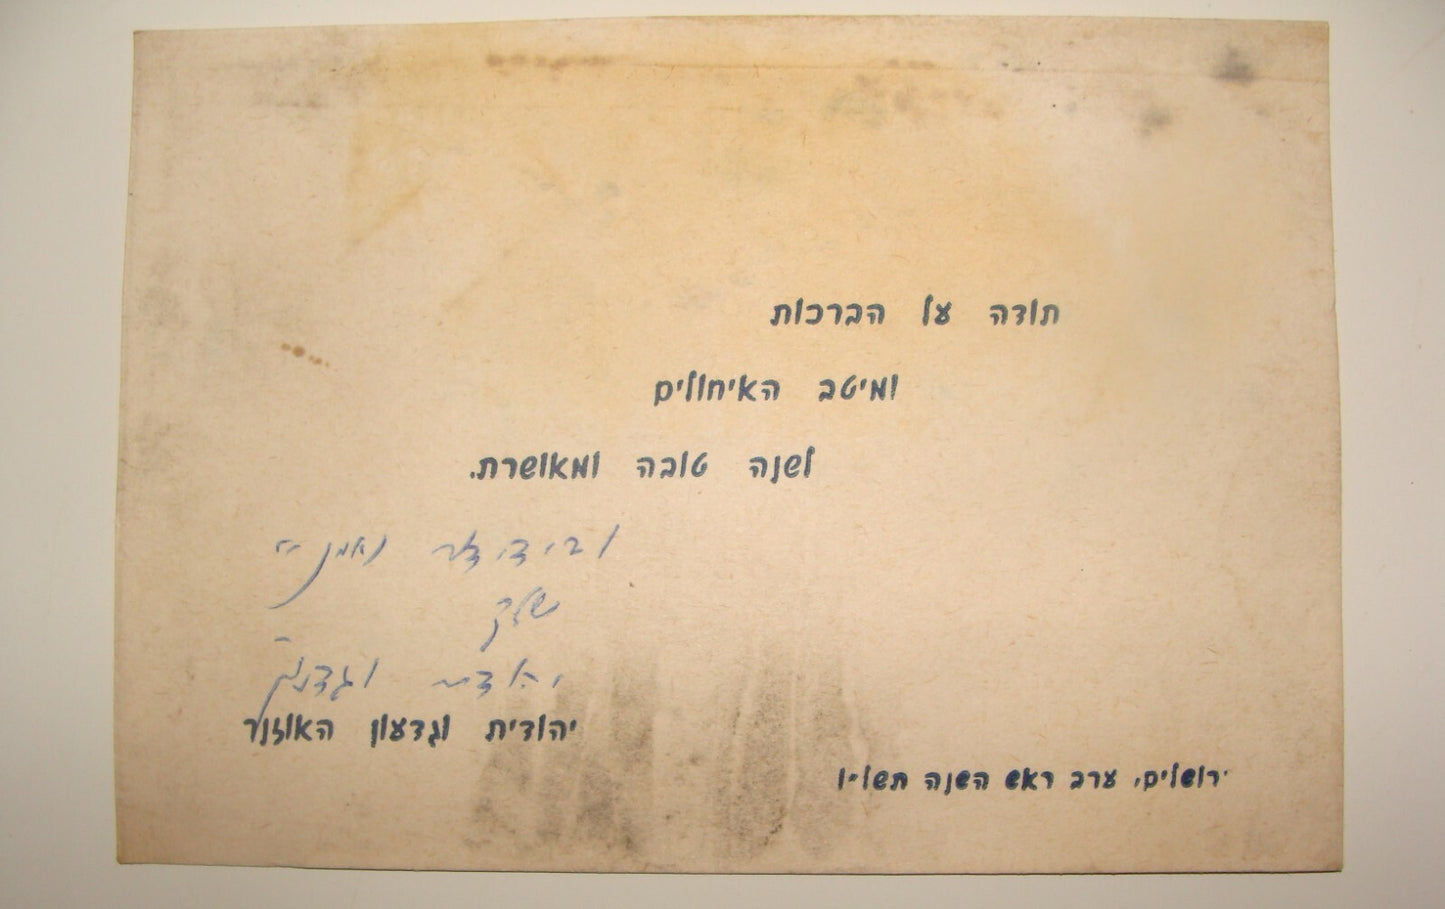 תודה על הברכות
ומיטב האיחולים
לשנה טובה ומאושרת.
ובידידות
שלכם
יהודית וגדעון
יהודית וגדעון האוזנר
ירושלים, ערב ראש השנה תשל״ו